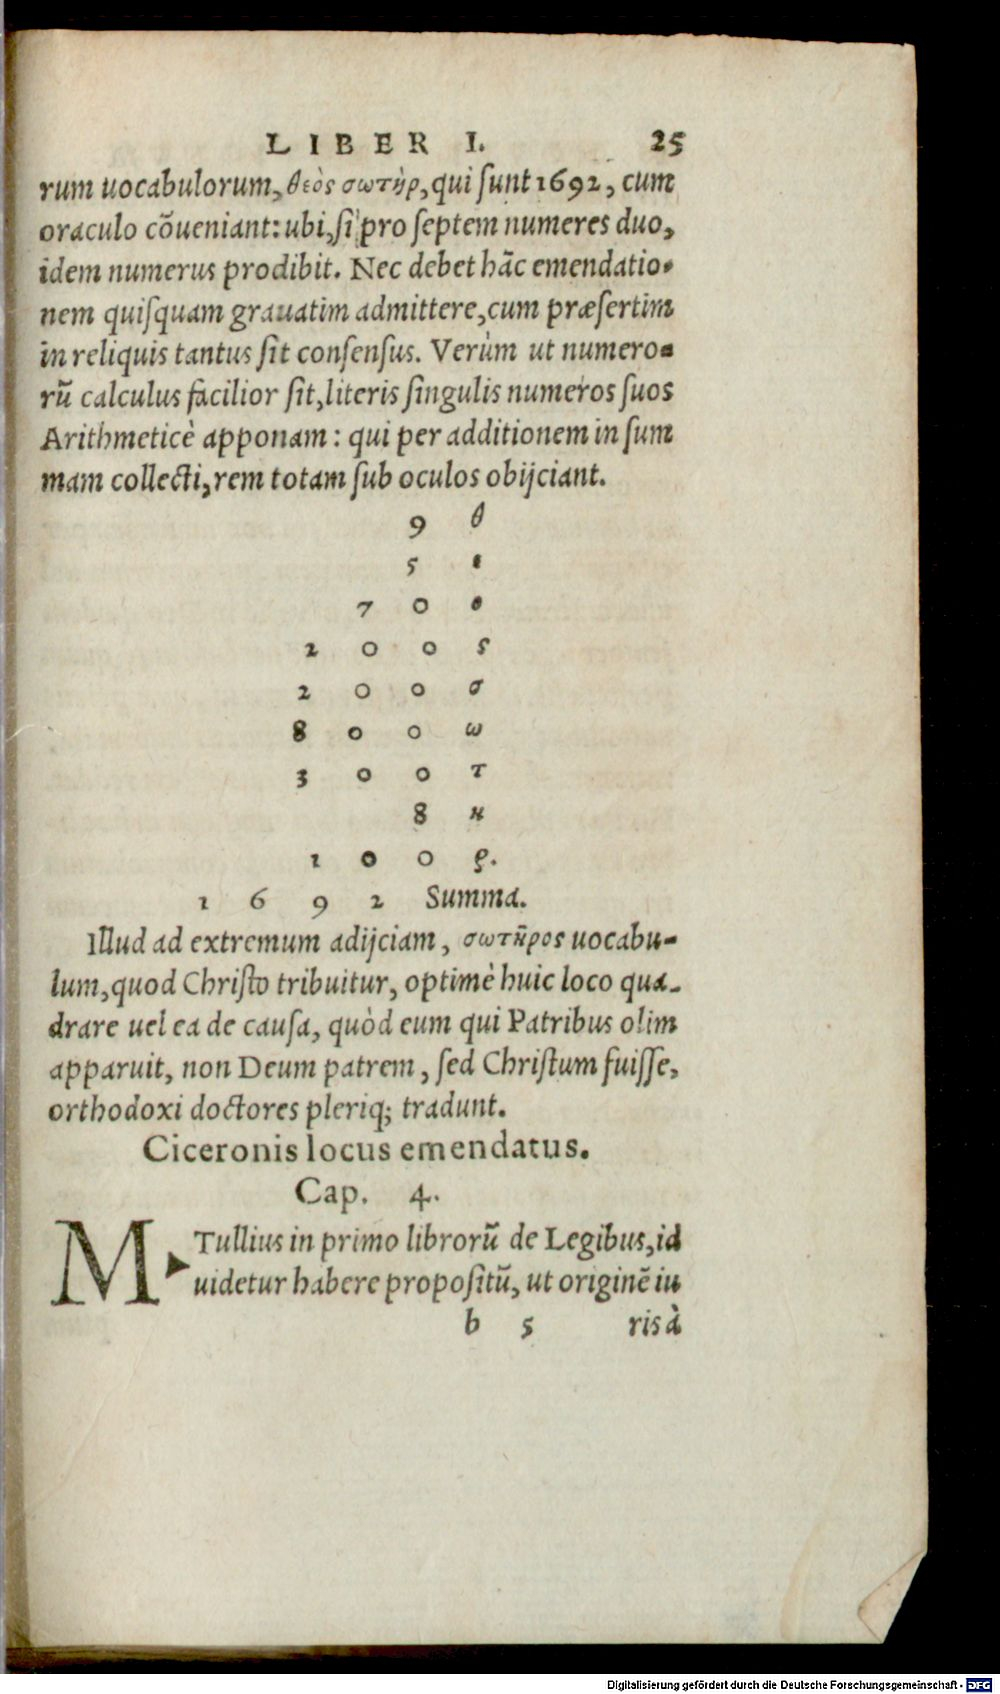 LIBER I. 25
rum uocabulorum, θεὸς σωτὴρ, qui sunt 1692, cum
oraculo cõueniant: ubi, si pro septem numeres duo,
idem numerus prodibit. Nec debet hãc emendatio-
nem quisquam grauatim admittere, cum præsertim
in reliquis tantus sit consensus. Verùm ut numero-
rũ calculus facilior sit, literis singulis numeros suos
Arithmeticè apponam: qui per additionem in sum
mam collecti, rem totam sub oculos obijciant.
9 θ
5 ε
7 0 ο
2 0 0 ς
2 0 0 σ
8 0 0 ω
3 0 0 τ
8 η
1 0 0 ρ.
1 6 9 2 Summa.
Illud ad extremum adijciam, σωτῆρος uocabu-
lum, quod Christo tribuitur, optimè huic loco qua-
drare uel ea de causa, quòd eum qui Patribus olim
apparuit, non Deum patrem, sed Christum fuisse,
orthodoxi doctores pleriq; tradunt.
Ciceronis locus emendatus.
Cap. 4.
M. Tullius in primo librorũ de Legibus, id
uidetur habere propositũ, ut originẽ iu
b 5 ris à
Digitalisierung gefördert durch die Deutsche Forschungsgemeinschaft - DFG